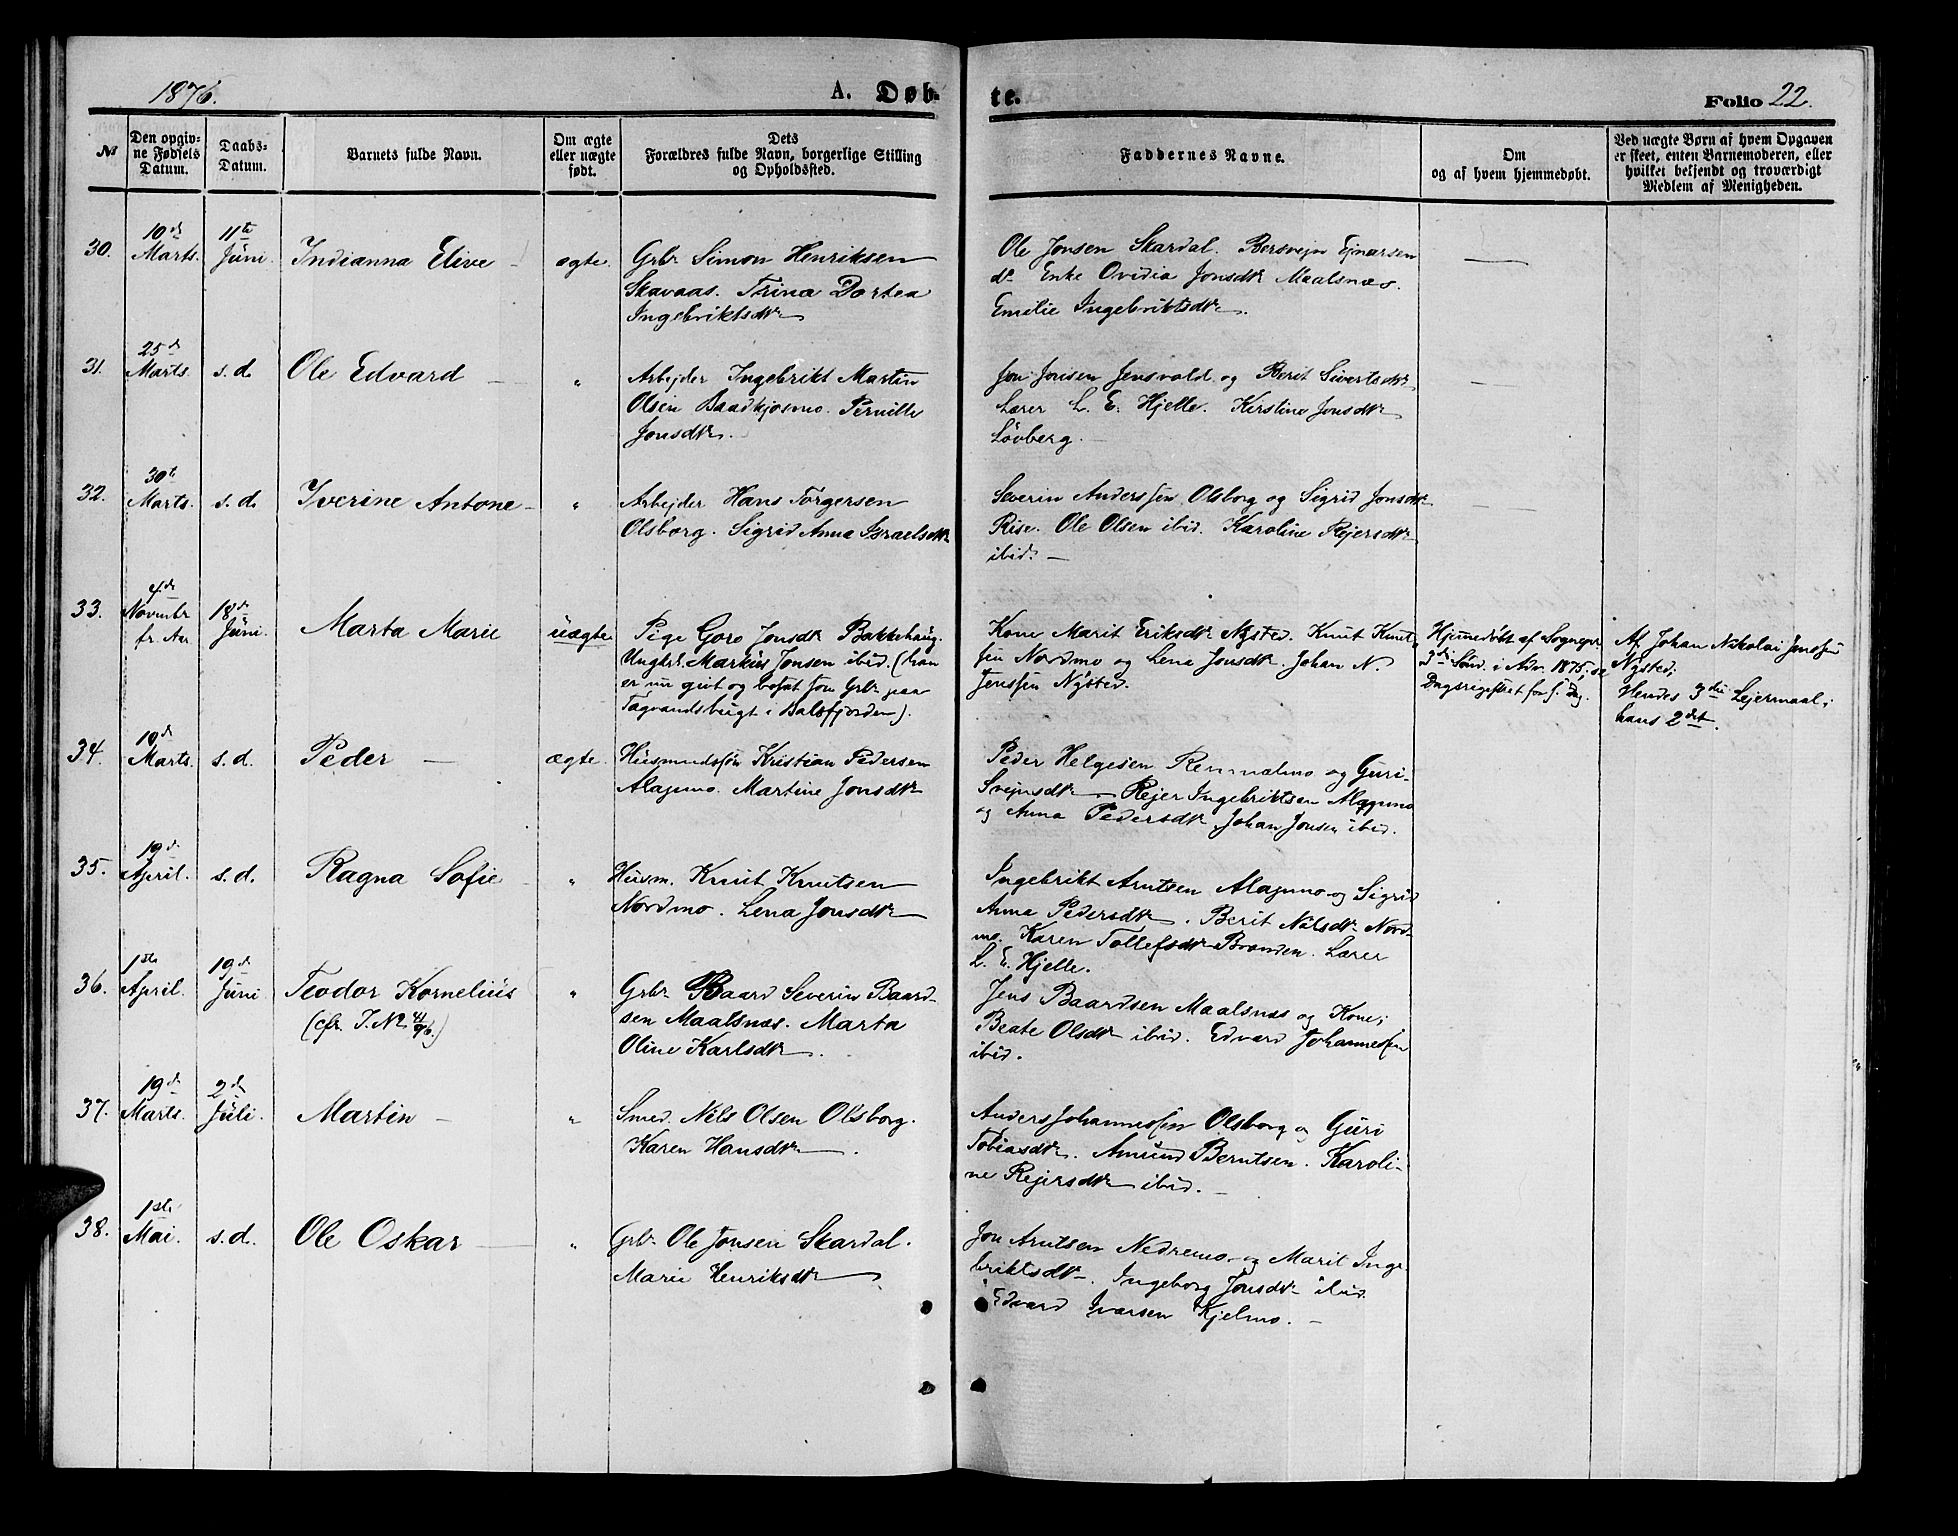 1876.
A. Døb-
te.
Folio 22.
№
Den opgiv-
ne Fødsels
Datum.
Daabs-
Datum.
Barnets fulde Navn.
Om ægte
eller uægte
født.
Dets
Forældres fulde Navn, borgerlige Stilling
og Opholdssted.
Faddernes Navne.
Om
og af hvem hjemmedøbt.
Ved uægte Børn af hvem Opgaven
er skeet, enten Barnemoderen, eller
hvilket bekjendt og troværdigt
Medlem af Menigheden.
30.
10de
Marts.
11te
Juni.
Indianna Elive
ægte.
Grbr Simon Henriksen
Skavaas. Trina Dortea
Ingebriktsdtr
Ole Jonsen Skardal. Bersvejn Ejnarsen
do Enke Ovidia Jonsdtr Maalsnæs.
Emilie Ingebriktsdtr.
31.
25de
Marts.
s. d.
Ole Edvard
"
Arbejder Ingebrikt Martin
Olsen Baadkjosmo. Pernille
Jonsdtr.
Jon Jonsen Jensvold og Berit Sivertsdtr
Lærer L. E. Hjelle. Kirstine Jonsdtr
Løvberg.
32.
30te
Marts.
s. d.
Iverine Antone
"
Arbejder Hans Torgersen
Olsborg. Sigrid Anna Israelsdtr
Severin Anderssen Olsborg og Sigrid Jonsdtr
Rise. Ole Olsen ibid. Karoline Rejersdtr
ibid.
33.
4de
Novembr
fr. Aar
18de
Juni.
Marta Marie
uægte
Pige Goro Jonsdtr Bakkehaug.
Ungkr. Markus Jonsen ibid. (han
er nu gift og bosat som Grbr paa
Tagvandsbugt i Balsfjorden).
Kone Marit Eriksdtr Nysted. Knut Knut-
sen Nordmo og Lena Jonsdtr. Johan N.
Jenssen Nysted.
Hjemmedøbt af Sognepr.
3die Sønd. i Adv. 1875; se
Dagsregistret for s. Dag.
Af Johan Nikolai Jenssen
Nysted;
Hendes 3die Lejermaal;
hans 2det.
34.
10de
Marts.
s. d.
Peder
ægte.
Husmandssøn Kristian Pedersen
Alapmo. Martine Jonsdtr
Peder Helgesen Remmalmo og Guri
Svejnsdtr Rejer Ingebriktsen Alapmo
og Anna Pedersdtr, Johan Jonsen ibid.
35.
19de
April.
s. d.
Ragna Sofie
"
Husm. Knut Knutsen
Nordmo. Lena Jonsdtr
Ingebrikt Arntsen Alapmo og Sigrid
Anna Pedersdtr. Berit Nilsdtr Nord-
mo. Karen Tollefsdtr Branden. Lærer
L. E. Hjelle.
36.
1ste
April.
19de
Juni
Teodor Kornelius
(cfr. J. № 41/76.)
"
Grbr Baard Severin Baard-
sen Maalsnæs. Marta
Oline Karlsdtr.
Jens Baardsen Maalsnæs og Kone;
Beate Olsdtr ibid. Edvard Johannessen
ibid.
37.
19de
Marts.
2de
Juli.
Martin
"
Smed. Nils Olsen Olsborg.
Karen Hansdtr.
Anders Johannessen Olsborg og Guri
Tobiasdtr. Amund Berntsen. Karoli-
ne Rejersdtr ibid.
38.
1ste
Mai.
s. d.
Ole Oskar
"
Grbr Ole Jonsen Skardal.
Marie Henriksdtr
Jon Arntsen Nedremo og Marit Inge-
briktsdtr. Ingeborg Jonsdtr ibid
Edvard Ivarsen Kjelmo.